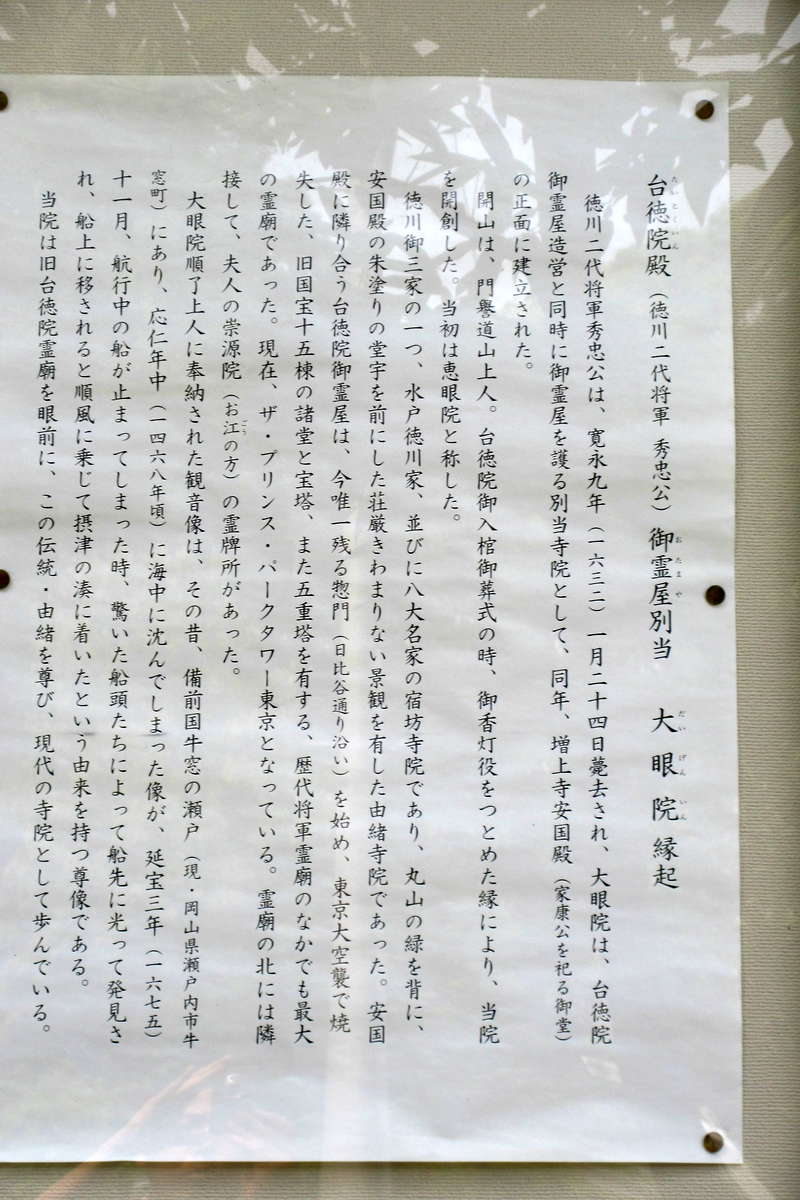 台徳院殿（徳川二代将軍 秀忠公）御霊屋別当 大眼院縁起
徳川二代将軍秀忠公は、寛永九年（一六三二）一月二十四日薨去され、大眼院は、台徳院
御霊屋造営と同時に御霊屋を護る別当寺院として、同年、増上寺安国殿（家康公を祀る御堂）
の正面に建立された。
開山は、門譽道山上人。台徳院御入棺御葬式の時、御香灯役をつとめた縁により、当院
を開創した。当初は恵眼院と称した。
徳川御三家の一つ、水戸徳川家、並びに八大名家の宿坊寺院であり、丸山の緑を背に、
安国殿の朱塗りの堂宇を前にした荘厳きわまりない景観を有した由緒寺院であった。安国
殿に隣り合う台徳院御霊屋は、今唯一残る惣門（日比谷通り沿い）を始め、東京大空襲で焼
失した、旧国宝十五棟の諸堂と宝塔、また五重塔を有する、歴代将軍霊廟のなかでも最大
の霊廟であった。現在、ザ・プリンス・パークタワー東京となっている。霊廟の北には隣
接して、夫人の崇源院（お江の方）の霊牌所があった。
大眼院順了上人に奉納された観音像は、その昔、備前国牛窓の瀬戸（現・岡山県瀬戸内市牛
窓町）にあり、応仁年中（一四六八年頃）に海中に沈んでしまった像が、延宝三年（一六七五）
十一月、航行中の船が止まってしまった時、驚いた船頭たちによって船先に光って発見さ
れ、船上に移されると順風に乗じて摂津の湊に着いたという由来を持つ尊像である。
当院は旧台徳院霊廟を眼前に、この伝統・由緒を尊び、現代の寺院として歩んでいる。